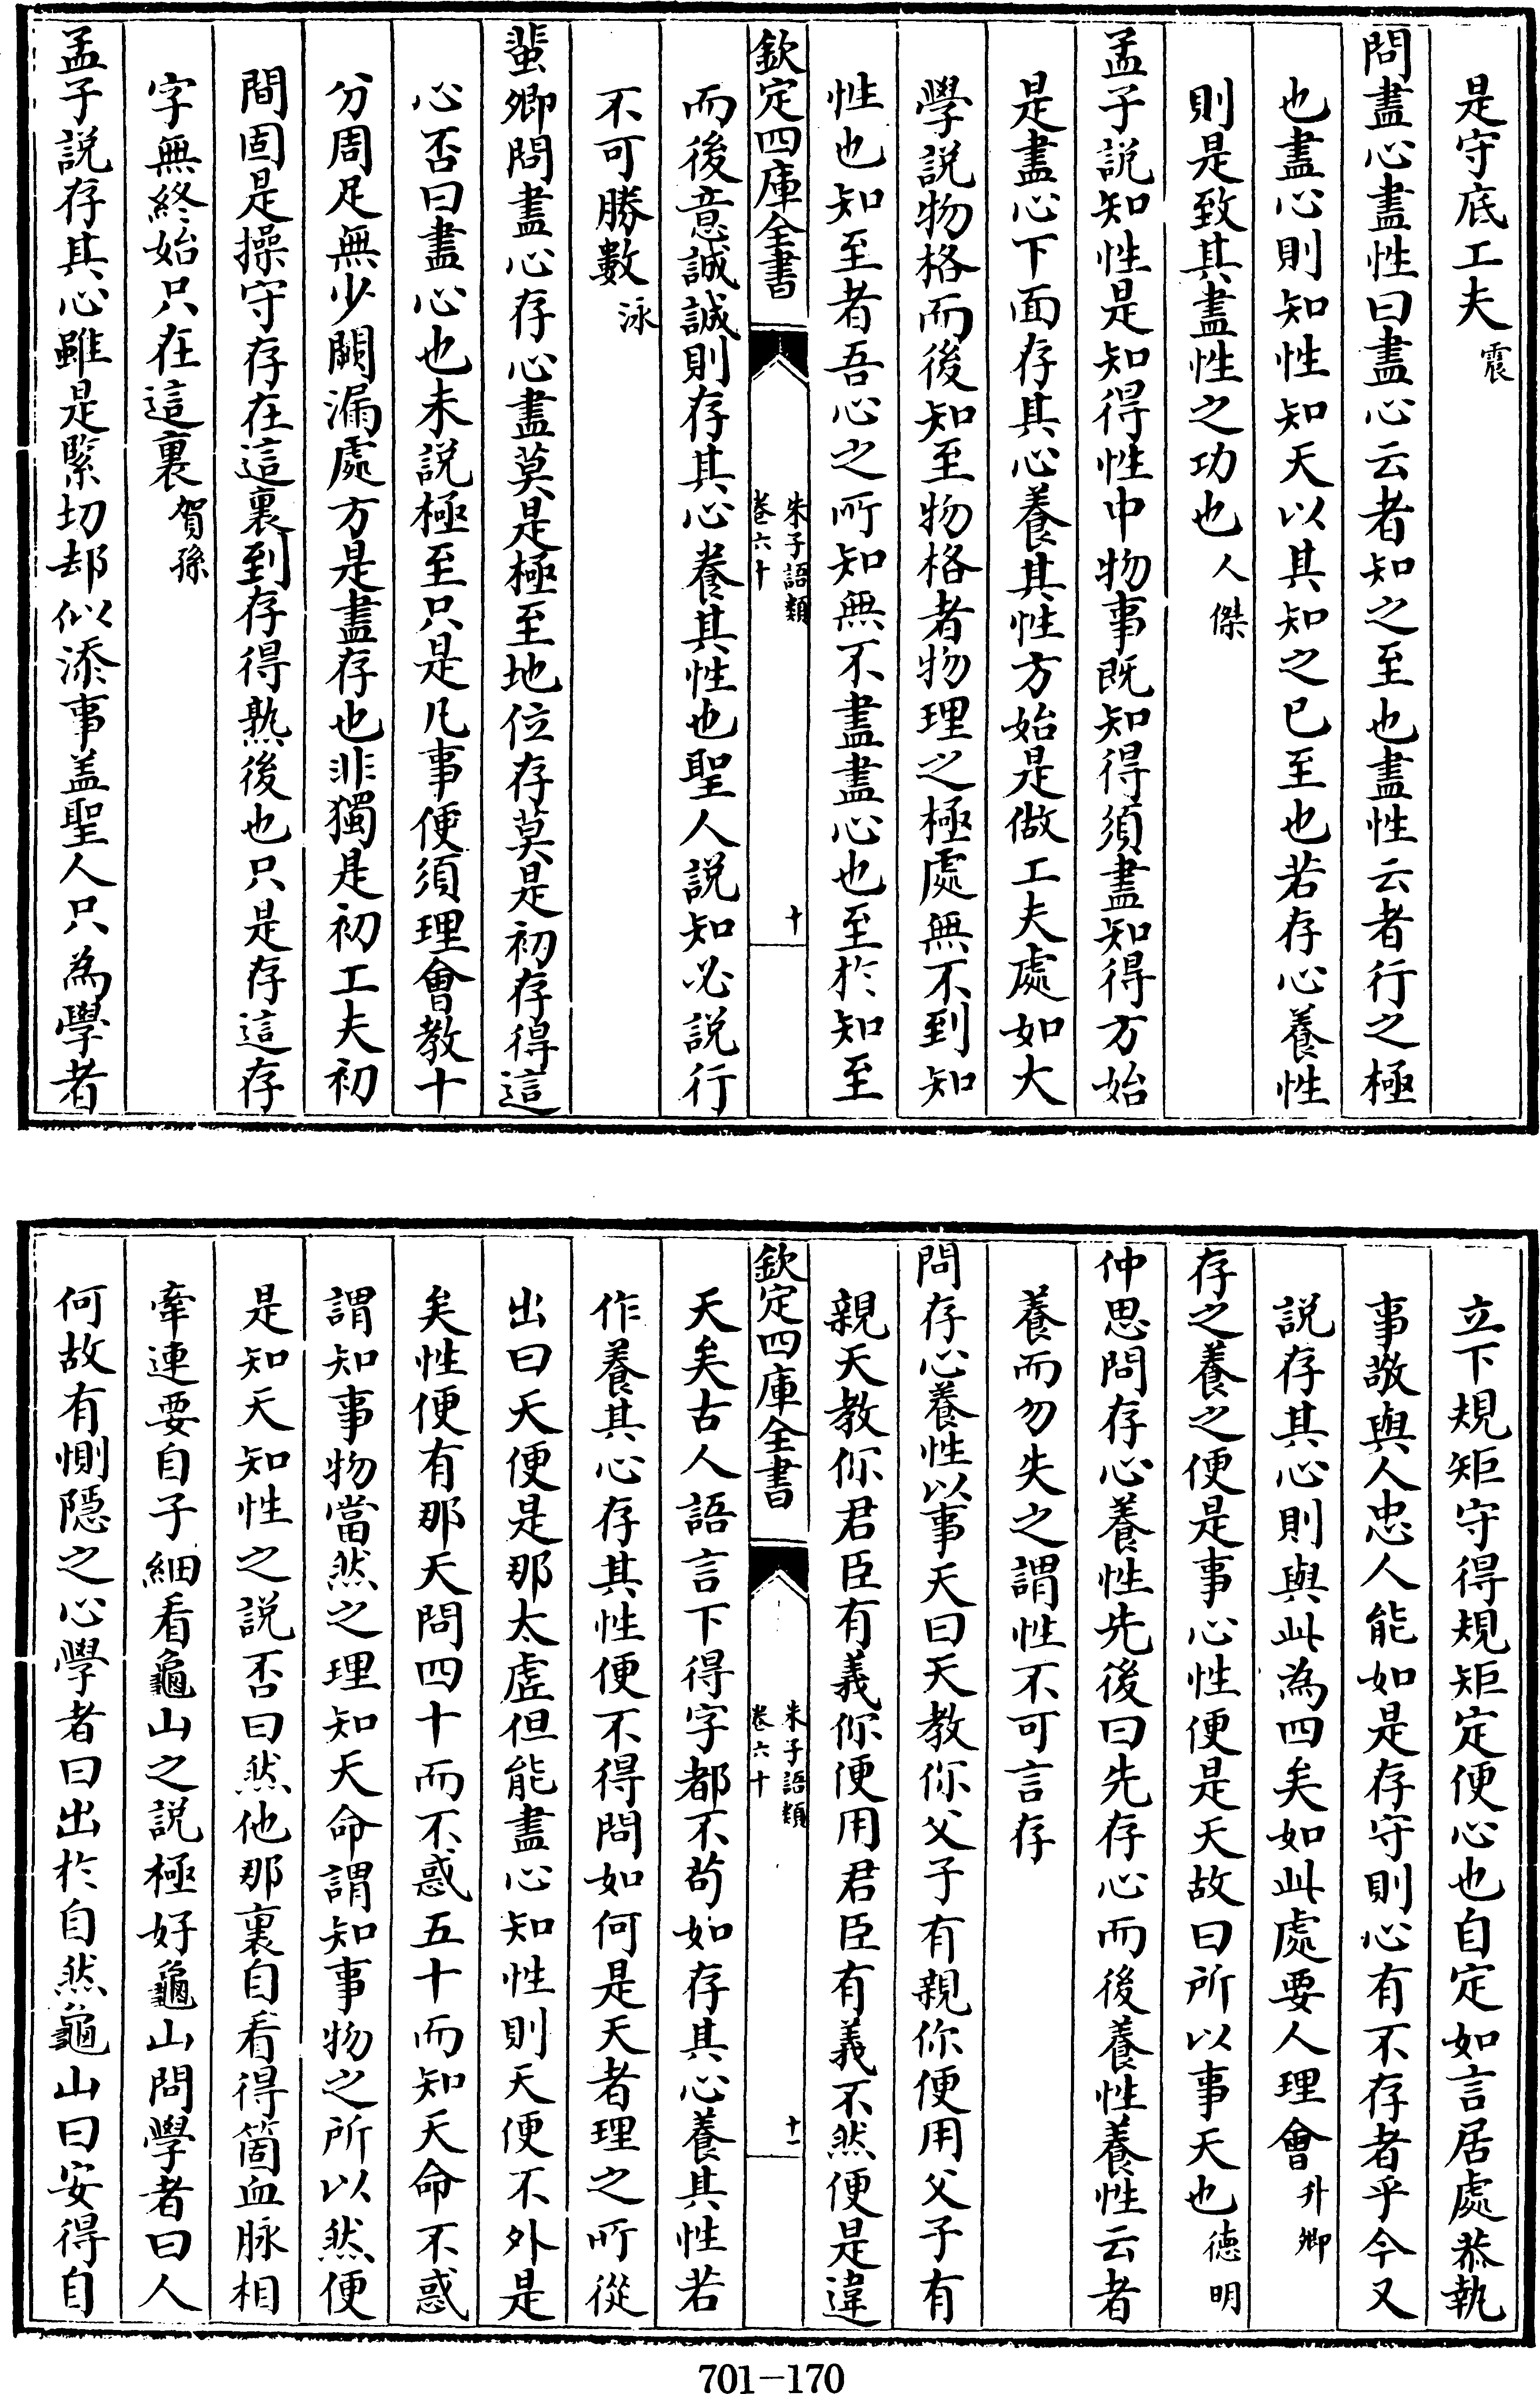 是守底工夫震
問盡心盡性曰盡心云者知之至也盡性云者行之極
也盡心則知性知天以其知之已至也若存心養性
則是致其盡性之功也人傑
孟子說知性是知得性中物事既知得須盡知得方始
是盡心下面存其心養其性方始是做工夫處如大
學說物格而後知至物格者物理之極處無不到知
性也知至者吾心之所知無不盡盡心也至於知至
欽定四庫全書
朱子語類
卷六十
十
而後意誠誠則存其心養其性也聖人說知必說行
不可勝數泳
蜚卿問盡心存心盡莫是極至地位存莫是初存得這
心否曰盡心也未說極至只是凡事便須理會教十
分周足無少闕漏處方是盡存也非獨是初工夫初
間固是操守存在這裏到存得熟後也只是存這存
字無終始只在這裏賀孫
孟子說存其心雖是緊切却似添事盖聖人只為學者
立下規矩守得規矩定便心也自定如言居處恭執
事敬與人忠人能如是存守則心有不存者乎今又
說存其心則與此為四矣如此處要人理會升卿
存之養之便是事心性便是天故曰所以事天也德明
仲思問存心養性先後曰先存心而後養性養性云者
養而勿失之謂性不可言存
問存心養性以事天曰天教你父子有親你便用父子有
親天教你君臣有義你便用君臣有義不然便是違
欽定四庫全書
朱子語類
卷六十
十一
天矣古人語言下得字都不茍如存其心養其性若
作養其心存其性便不得問如何是天者理之所從
出曰天便是那太虛但能盡心知性則天便不外是
矣性便有那天問四十而不惑五十而知天命不惑
謂知事物當然之理知天命謂知事物之所以然便
是知天知性之說否曰然他那裏自看得箇血脉相
牽連要自子細看龜山之說極好龜山問學者曰人
何故有惻隱之心學者曰出於自然龜山曰安得自
701-170